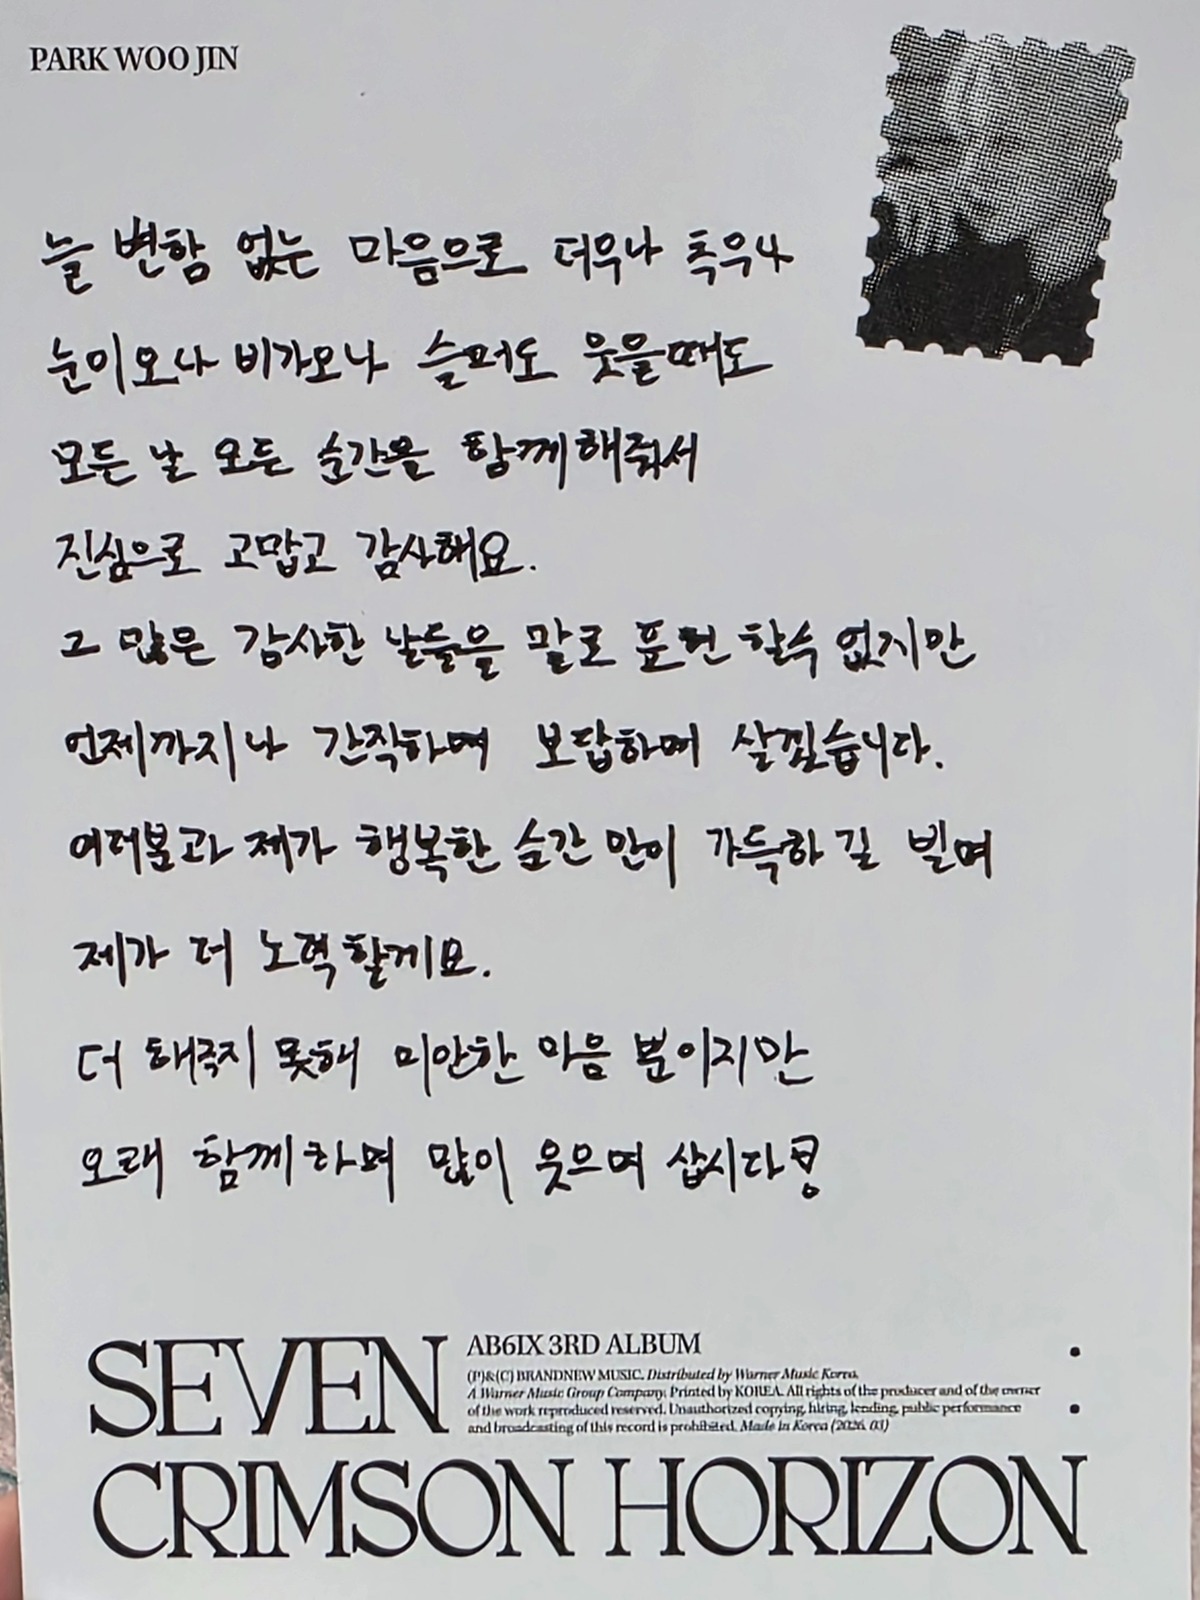 PARK WOO JIN
늘 변함 없는 마음으로 더우나 추우나
눈이오나 비가오나 슬퍼도 웃을때도
모든 날 모든 순간을 함께해줘서
진심으로 고맙고 감사해요.
그 많은 감사한 날들을 말로 표현 할수 없지만
언제까지나 간직하며 보답하며 살겠습니다.
여러분과 제가 행복한 순간 만이 가득하길 빌며
제가 더 노력할게요.
더 해주지 못해 미안한 마음 뿐이지만
오래 함께하며 많이 웃으며 삽시다!
SEVEN :
AB6IX 3RD ALBUM
(P)&(C) BRANDNEW MUSIC. Distributed by Warner Music Korea,
A Warner Music Group Company. Printed by KOREA. All rights of the producer and of the owner
of the work reproduced reserved. Unauthorized copying, hiring, lending, public performance
and broadcasting of this record is prohibited. Made in Korea (2026. 03)
CRIMSON HORIZON